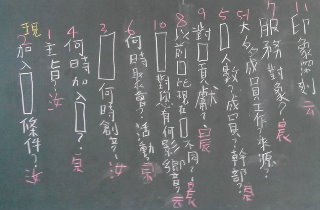 11 印象深刻 云
7 服務對象？晨
5-1 大名？成員工作？來源？
5 □人數？成員？幹部？晨
9 對□貢獻？晨
8 以前□比現在□不同？晨
10 □對您有何影響？云
6 何時聚會？活動？宗
3 □何時創立？汝
4 何時加入□？宗
1 主旨？汝
2 加入□條件？汝